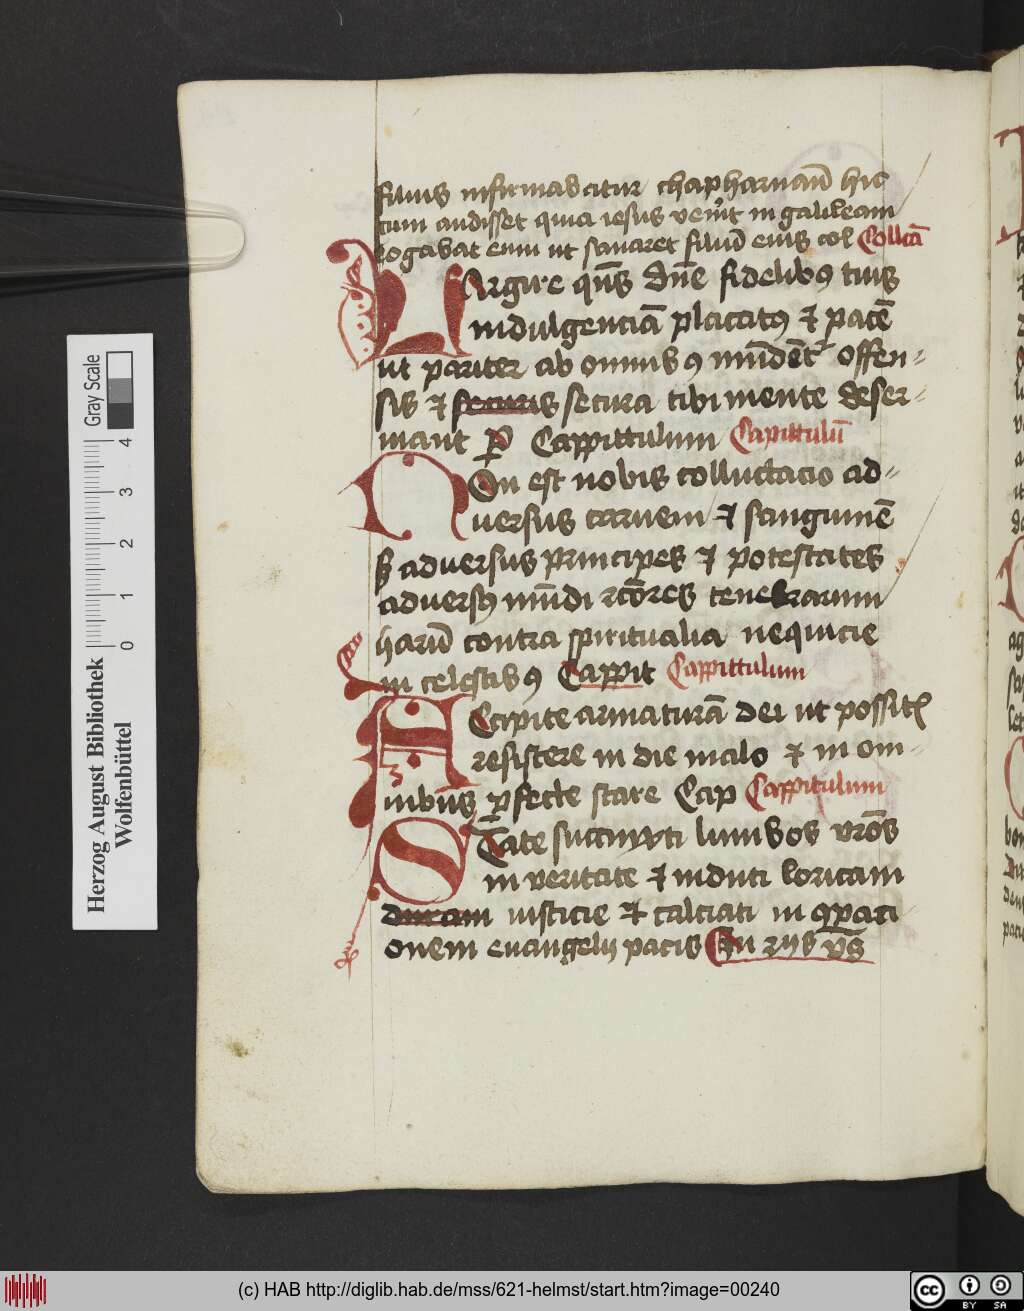 filius infirmabatur chapharnaū hic
cum audisset quia iesus veīt in galileam
rogabat eum ut sanaret filiū eius col Collcā
Largire qūs dn̄e fidelibꝰ tuis
indulgenciā placatꝰ et pacē
ut pariter ab omnibꝰ mūdēt offen
sis et securis secura tibi mente deser
uiant Cappittulum Capittulū
Non est nobis colluctacio ad
uersus carnem et sanguinē
adversus principes et potestates
adversꝰ mūdi rc̄ores tenebrarum
harū contra spiritualia nequicie
in celestibꝰ Cappit Cappittulum
Accipite armaturā dei ut possitꝭ
resistere in die malo et in om
nibus ꝑfecte stare Cap Cappitulum
State succinxti lumbos vr̄os
in veritate et induti loricam
iusticie et calciati in p̄paci
onem euangelij pacis vs̄
Herzog August Bibliothek
Wolfenbüttel
Gray Scale
0 1 2 3 4
(c) HAB http://diglib.hab.de/mss/621-helmst/start.htm?image=00240
cc BY SA